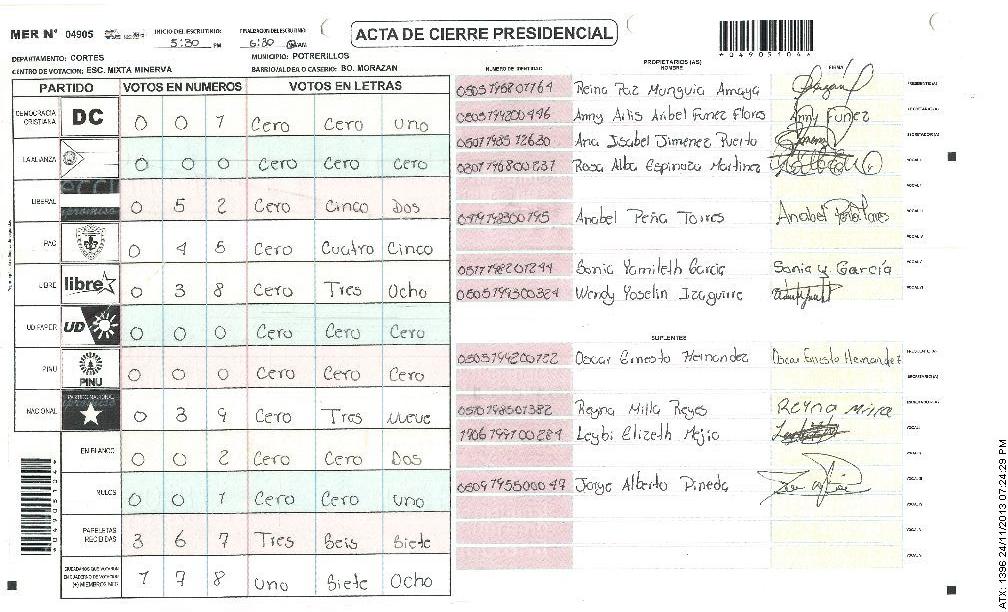 MER Nº 04905
INICIO DEL ESCRUTINIO:
5:30 PM
FINALIZACION DEL ESCRUTINIO:
6:30
ACTA DE CIERRE PRESIDENCIAL
*04905104*
DEPARTAMENTO: CORTES
MUNICIPIO: POTRERILLOS
CENTRO DE VOTACION: ESC. MIXTA MINERVA
BARRIO/ALDEA O CASERIO: BO. MORAZAN
PARTIDO VOTOS EN NUMEROS VOTOS EN LETRAS
DEMOCRACIA CRISTIANA DC 0 0 1 Cero Cero Uno
LA ALIANZA 0 0 0 Cero Cero Cero
LIBERAL 0 5 2 Cero Cinco Dos
PAC 0 4 5 Cero Cuatro Cinco
LIBRE libre 0 3 8 Cero Tres Ocho
UD FAPER UD 0 0 0 Cero Cero Cero
PINU PINU 0 0 0 Cero Cero Cero
NACIONAL PARTIDO NACIONAL 0 3 9 Cero Tres Nueve
EN BLANCO 0 0 2 Cero Cero Dos
NULOS 0 0 1 Cero Cero Uno
PAPELETAS RECIBIDAS 3 6 7 Tres Seis Siete
CIUDADANOS QUE VOTARON EN CUADERNO DE VOTACION (+) MIEMBROS MER 1 7 8 Uno Siete Ocho
PROPIETARIOS (AS)
NUMERO DE IDENTIDAD NOMBRE FIRMA
Reina Paz Munguia Amaya PRESIDENTE(A)
Anny Arlis Aribel Funez Flores Anny Funez SECRETARIO(A)
Ana Isabel Jimenez Puerto ESCRUTADOR(A)
Rosa Alba Espinoza Martinez VOCAL I
Anabel Peña Torres Anabel Peña Torres
Sonia Yamileth Garcia Sonia y. García
Wendy Yoselin Izaguirre
SUPLENTES
Oscar Ernesto Hernandez Oscar Ernesto Hernandez PRESIDENTE(A)
SECRETARIO(A)
Reyna Milla Reyes Reyna Milla ESCRUTADOR(A)
Leybi Elizeth Mejia
Jorge Alberto Pineda
ATX: 1396 24/11/2013 07:24:29 PM